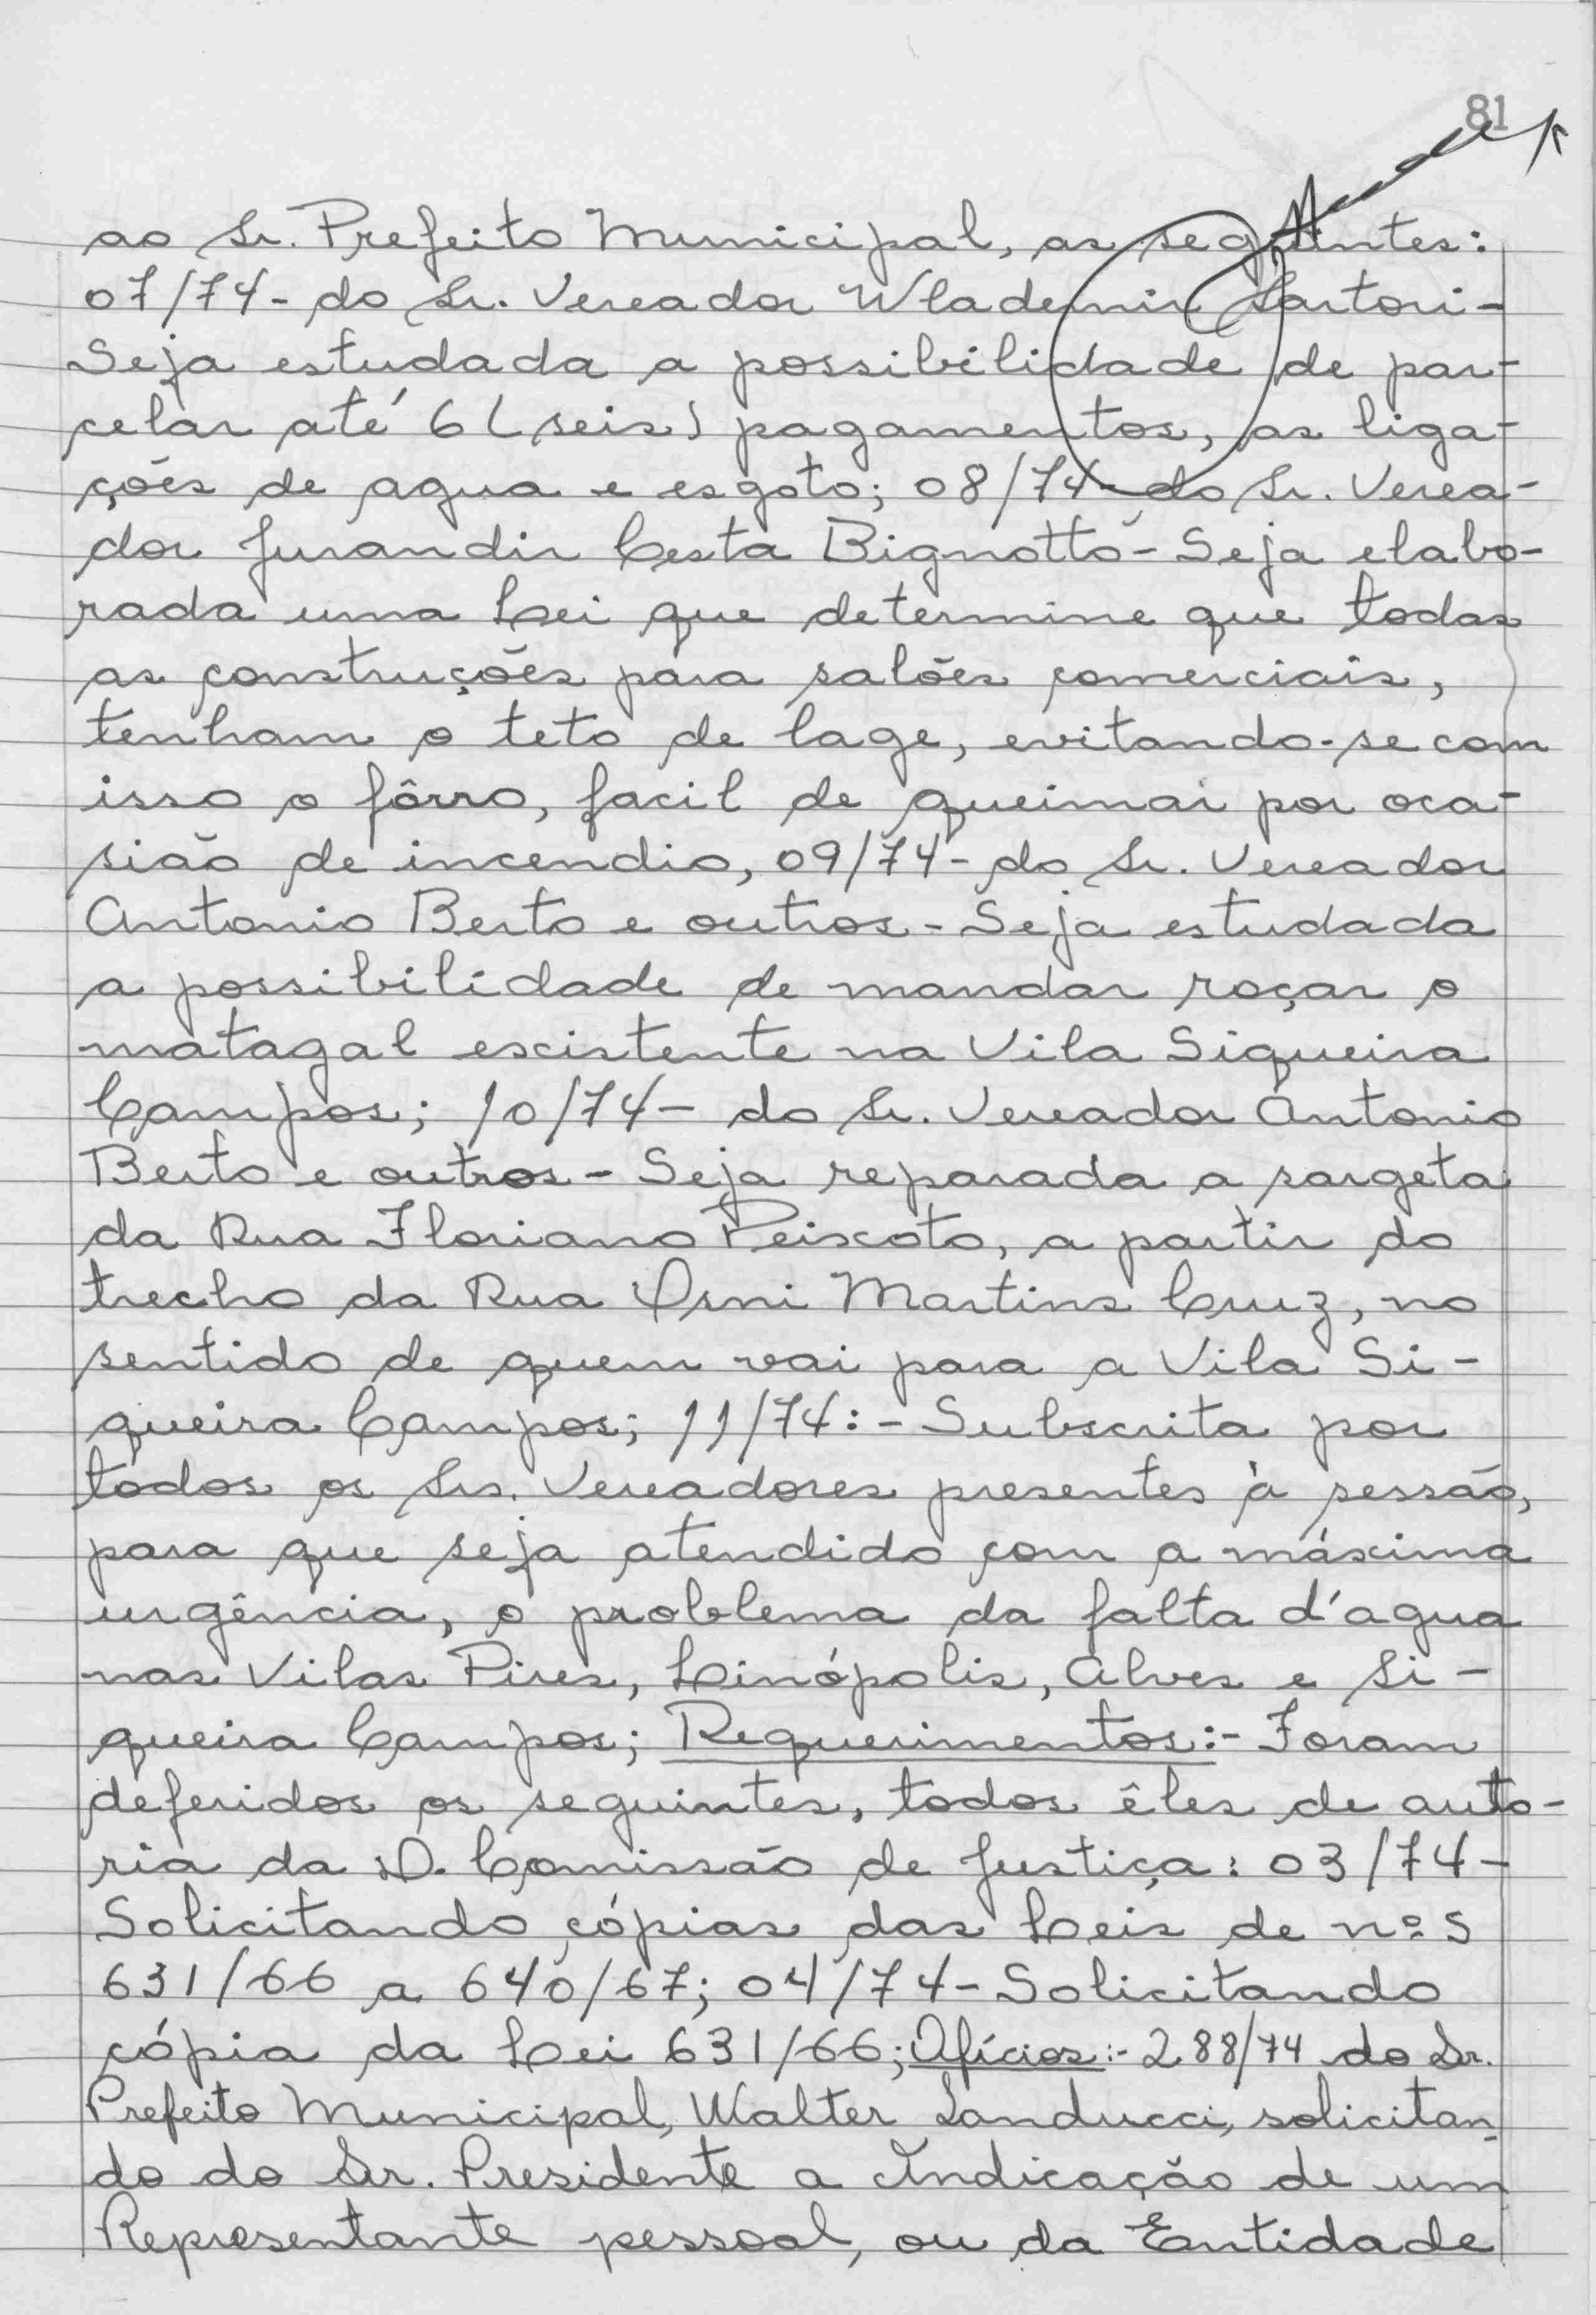 81
ao Sr. Prefeito Municipal, as seguintes:
07/74- do Sr. Vereador Wlademir Sartori-
Seja estudada a possibilidade de par-
celar até 6 (seis) pagamentos, as liga-
ções de agua e esgoto; 08/74- do Sr. Verea-
dor Jurandir Cesta Bignotto- Seja elabo-
rada uma Lei que determine que todas
as construções para salões comerciais,
tenham o teto de lage, evitando-se com
isso o fôrro, facil de queimar por oca-
sião de incendio, 09/74- do Sr. Vereador
Antonio Berto e outros- Seja estudada
a possibilidade de mandar roçar o
matagal existente na Vila Siqueira
Campos; 10/74- do Sr. Vereador Antonio
Berto e outros- Seja reparada a sargeta
da Rua Floriano Peixoto, a partir do
trecho da Rua Osni Martins Cruz, no
sentido de quem vai para a Vila Si-
queira Campos; 11/74:- Subscrita por
todos os Srs. Vereadores presentes à sessão,
para que seja atendido com a máxima
urgência, o problema da falta d'agua
nas Vilas Pires, Linópolis, Alves e Si-
queira Campos; Requerimentos:- Foram
deferidos os seguintes, todos êles de auto-
ria da D. Comissão de Justiça: 03/74-
Solicitando cópias das Leis de nºs
631/66 a 640/67; 04/74- Solicitando
cópia da Lei 631/66; Ofícios:- 288/74 do Sr.
Prefeito Municipal, Walter Landucci, solicitan-
do do Sr. Presidente a Indicação de um
Representante pessoal, ou da Entidade